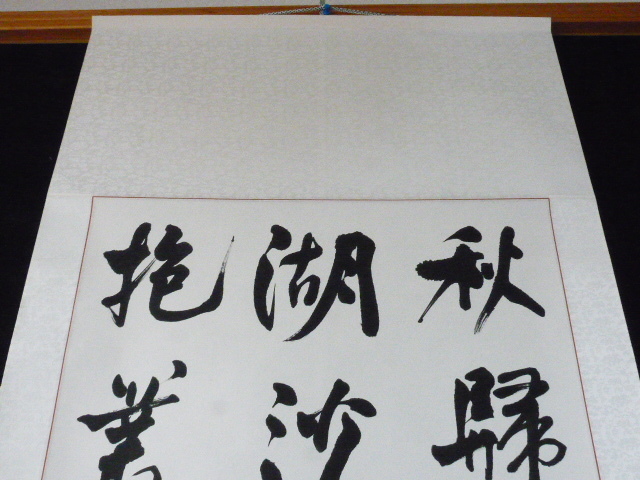 秋歸
湖沙
抱